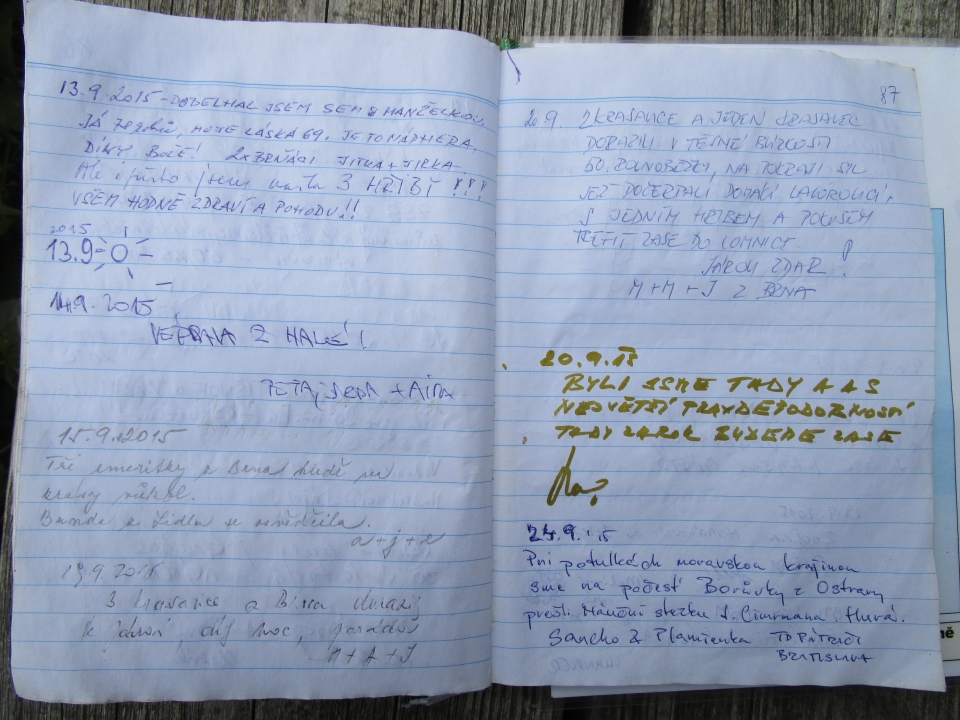 13.9.2015 - DOBELHAL JSEM SEM S MANŽELKOU
JÁ 72 roků, MOJE LÁSKA 69. JE TO NÁDHERA.
DÍKY BOŽE! 2x BRŇÁCI JITKA + JIRKA
Ale i přesto jsem našla 3 HŘIBY !!!
VŠEM HODNĚ ZDRAVÍ A POHODU!!
2015
13.9.
14.9.2015
VĚTRNA Z HALE!
PEŤA, + AIDA
15.9.2015
Tři emeritky z Brna hledě na
krásy
Bunda z Lidlu se osvědčila.
a + j + e
19.9.2015
3 krasavice z Brna
k moc,
M + A + J
87
20.9. 2 KRASAVICE A JEDEN KRASAVEC
DORAZILI V TĚSNÉ BLÍZKOSTI
50. ROVNOBĚŽKY, NA POKRAJI SIL
JEŽ DOČERPALI DOMÁCÍ
S JEDNÍM HŘIBEM A POKUSEM
TREFIT ZASE DO LOMNICE.
JÁROVI ZDAR!
M + M + J Z BRNA
20.9.15
BYLI JSME TADY A A S
NEJVĚTŠÍ PRAVDĚPODOBNOSTÍ
TADY ZAROK BUDEME ZASE
24.9.'15
Pri potulkách moravskou krajinou
sme na počesť Borůvky z Ostravy
prešli Náučnú stezku J. Cimrmana. Hurá.
Sancho & Plamienka TD PÁTRAČI
BRATISLAVA